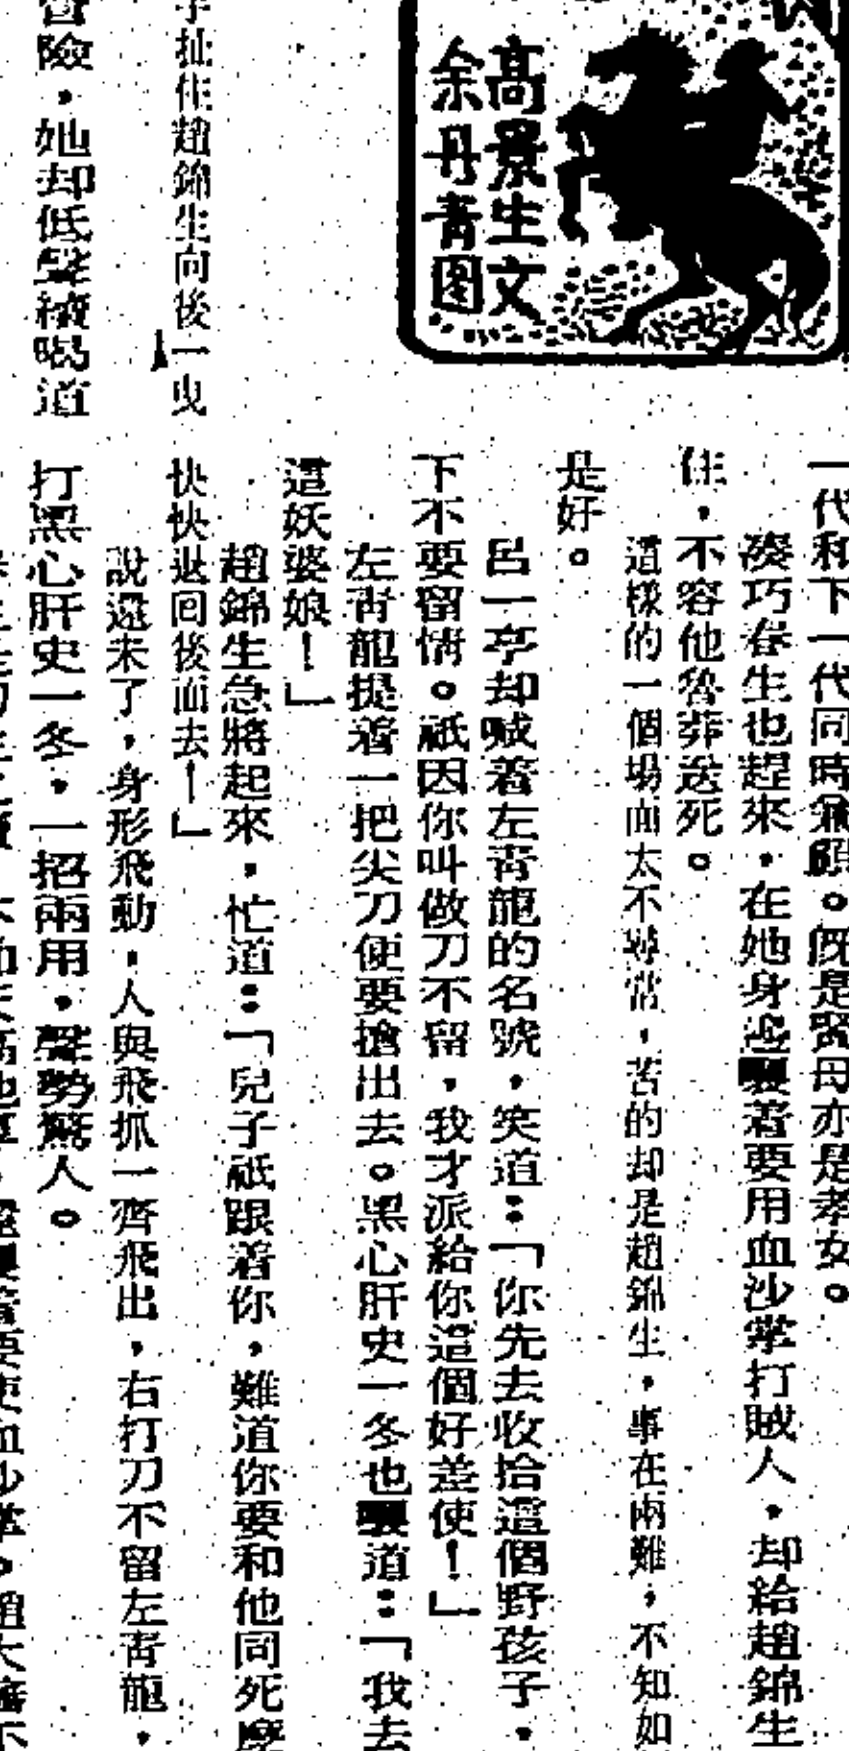 高景生文
余丹青图
一代和下一代同時兼顧。既是賢母亦是孝女。
湊巧春生也趕來，在她身邊嚷着要用血沙掌打賊人，却給趙錦生
住，不容他魯莽送死。
這樣的一個場面太不尋常，苦的却是趙錦生，事在兩難，不知如
是好。
呂一亭却喊着左青龍的名號，笑道：「你先去收拾這個野孩子，
下不要留情。祇因你叫做刀不留，我才派給你這個好差使！」
左青龍提着一把尖刀便要搶出去。黑心肝史一冬也嚷道：「我去
這妖婆娘！」
趙錦生急將起來，忙道：「兒子祇跟着你，難道你要和他同死麼
快快退回後面去！」
說還未了，身形飛動，人與飛抓一齊飛出，右打刀不留左青龍，
打黑心肝史一冬，一招兩用，聲勢驚人。
扯住趙錦生向後一曳
冒險，她却低聲續喝道